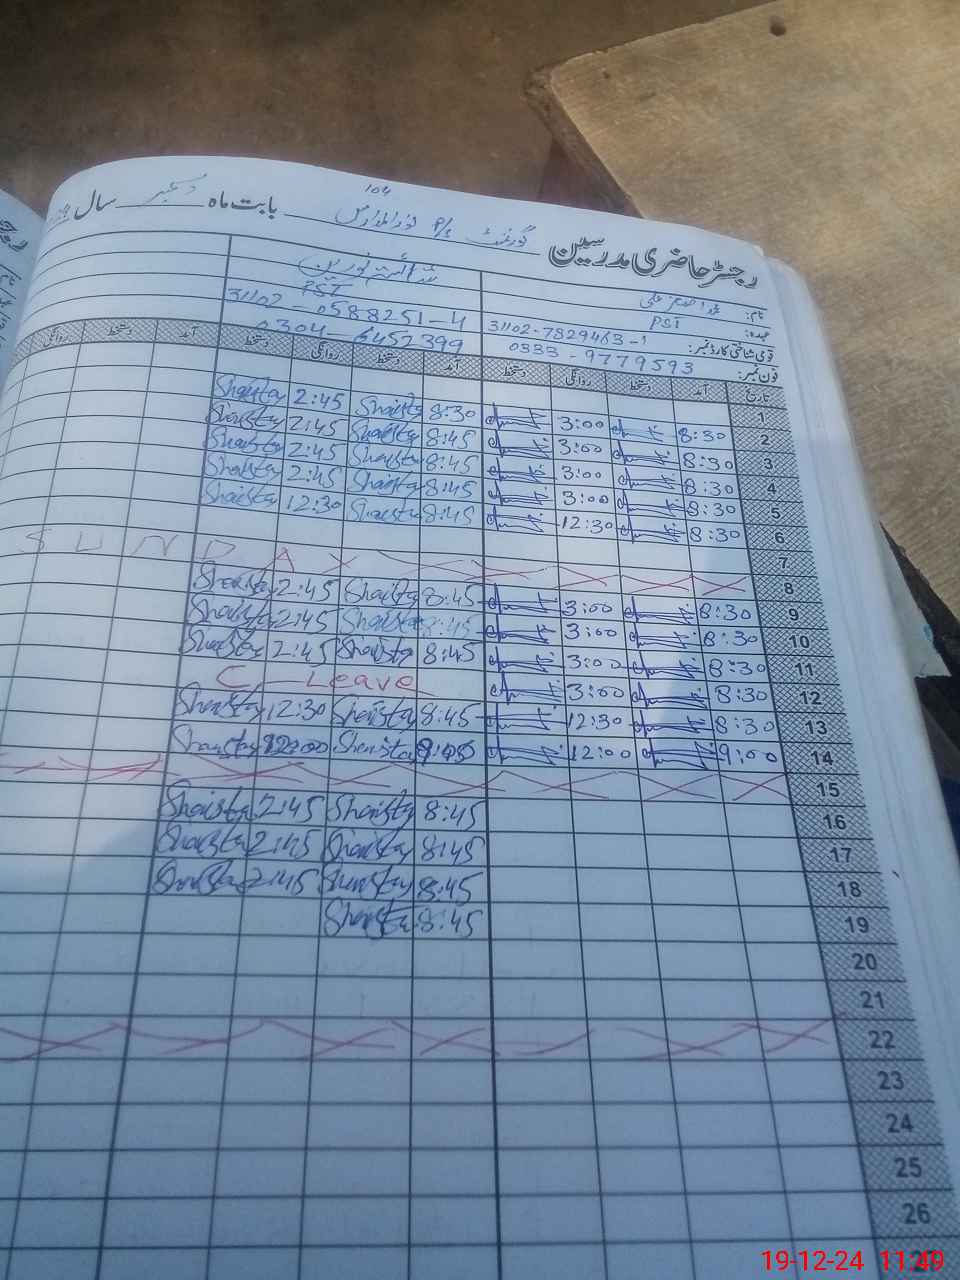 رجسٹر حاضری مدرسین گورنمنٹ P/S نورالمدارس 104 بابت ماہ دسمبر سال
نام: شائستہ نورین
عہدہ: PST PST
قومی شناختی کارڈ نمبر: 31102-7829463-1 31102-0588251-4
فون نمبر: 0333-9779593 0304-6457399
تاریخ آمد دستخط روانگی دستخط آمد دستخط روانگی دستخط آمد دستخط روانگی
1
2 8:30 3:00 8:30 Shaista 2:45 Shaista
3 8:30 3:00 8:45 Shaista 2:45 Shaista
4 8:30 3:00 8:45 Shaista 2:45 Shaista
5 8:30 3:00 8:45 Shaista 2:45 Shaista
6 8:30 12:30 8:45 Shaista 12:30 Shaista
7
8 SUNDAY
9 8:30 3:00 8:45 Shaista 2:45 Shaista
10 8:30 3:00 8:45 Shaista 2:45 Shaista
11 8:30 3:00 8:45 Shaista 2:45 Shaista
12 8:30 3:00 C-Leave
13 8:30 12:30 8:45 Shaista 12:30 Shaista
14 9:00 12:00 Shaista 12:00 Shaista
15
16 8:45 Shaista 2:45 Shaista
17 8:45 Shaista 2:45 Shaista
18 8:45 Shaista 2:45 Shaista
19 8:45 Shaista
20
21
22
23
24
25
26
19-12-24 11:49